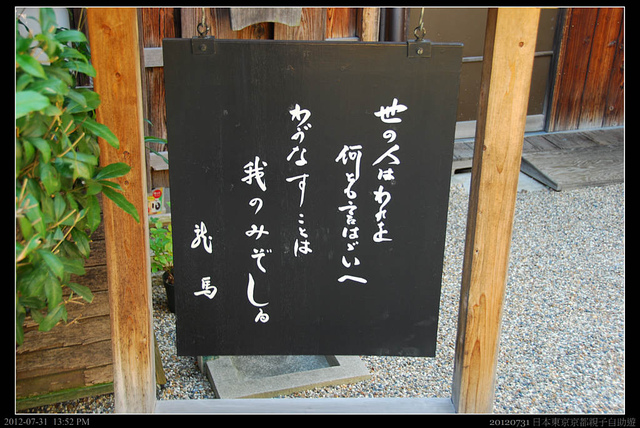 世の人はわれを
何とも言はゞいへ
わがなすことは
我のみぞしる
龍馬
2012-07-31 13:52 PM
20120731 日本東京京都親子自助遊